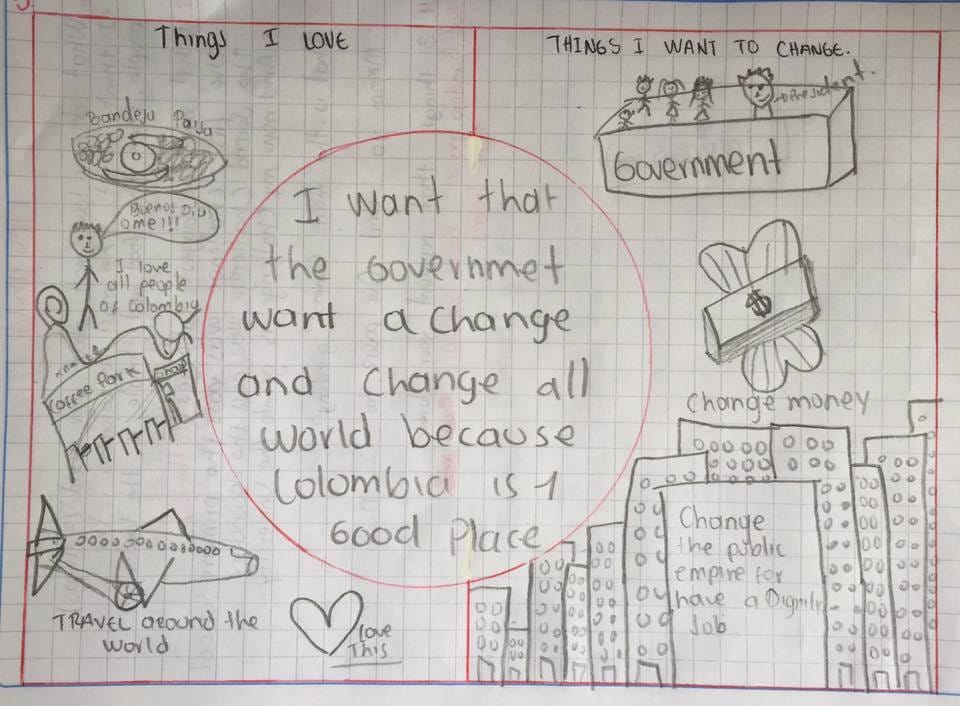 Things I LOVE
Bandeja Paisa
Buenos Dias
ome!!!
I love
all people
of colombia
Coffee Park
TRAVEL around the
world
love
This
I want that
the Governmet
want a change
and change all
world because
Colombia is 1
Good Place
THINGS I WANT TO CHANGE.
President.
Government
$
Change money
Change
the public
empire for
have a Dignity
Job